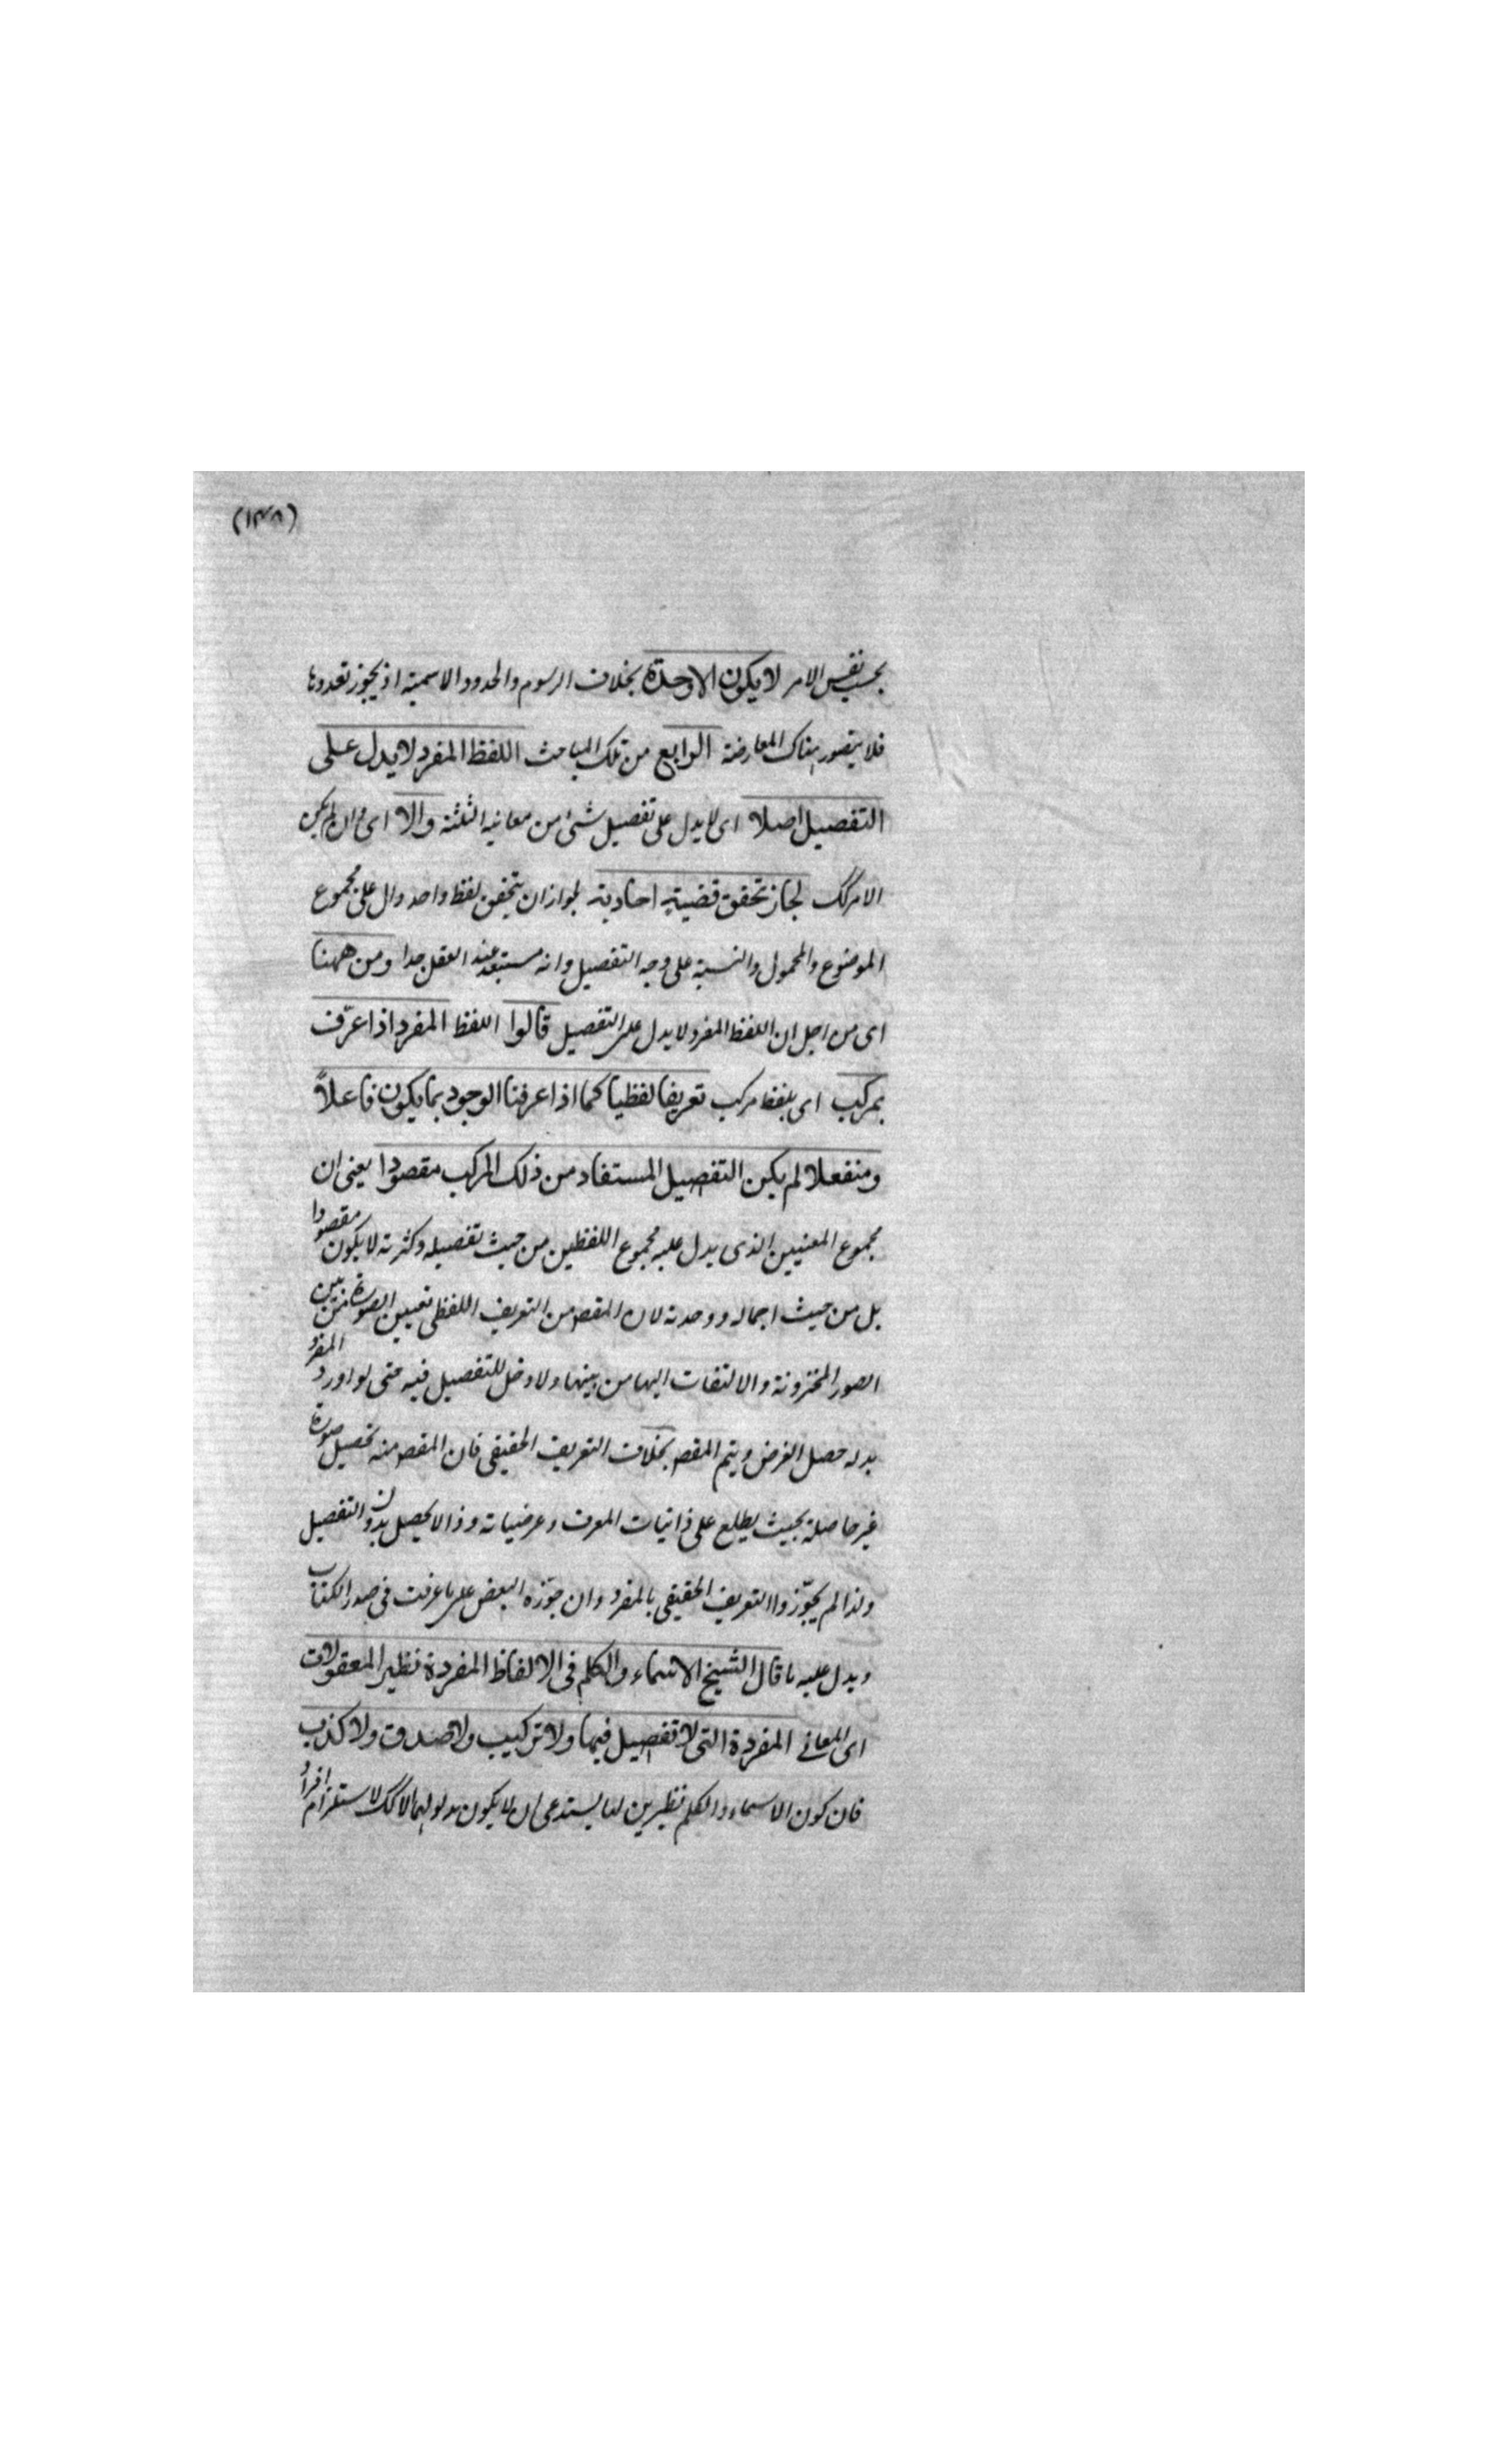 (١٣٨)
بحسب نفس الامر لا يكون الا وحدة بخلاف الرسوم والحدود الاسمية اذ يجوز تعددها
فلا يتصور هناك المعارضة الرابع من تلك المباحث اللفظ المفرد لا يدل على
التفصيل اصلا اى لا يدل على تفصيل شئ من معانيه الثلثة والا اى وان لم يكن
الامر كك لجاز تحقق قضية احادية لجواز ان يتحقق لفظ واحد دال على مجموع
الموضوع والمحمول والنسبة على وجه التفصيل وانه مستبعد عند العقل جدا ومن ههنا
اى من اجل ان اللفظ المفرد لا يدل على التفصيل قالوا اللفظ المفرد اذا عرّف
بمركب اى بلفظ مركب تعريفا لفظيا كما اذا عرفنا الوجود بما يكون فاعلاً
ومنفعلا لم يكن التفصيل المستفاد من ذلك المركب مقصودا يعنى ان
مجموع المعنيين الذى يدل عليه مجموع اللفظين من حيث تفصيله وكثرته لا يكون مقصودا
بل من حيث اجماله ووحدته لان المقصد من التعريف اللفظى تعيين الصورة من بين
الصور المخزونة والالتفات اليها من بينها ولا دخل للتفصيل فيه حتى لو اورد المفرد
بدله حصل الغرض ويتم المقصد بخلاف التعريف الحقيقى فان المقصد منه تحصيل صورة
غير حاصلة بحيث يطلع على ذاتيات المعرف وعرضياته وذا لا يحصل بدون التفصيل
ولذا لم يجوّزوا التعريف الحقيقى بالمفرد وان جوّزه البعض على ما عرفت فى صدر الكتاب
ويدل عليه ما قال الشيخ الاسماء والكلم فى الالفاظ المفردة نظير المعقولات
اى المعانى المفردة التى لا تفصيل فيها ولا تركيب ولا صدق ولا كذب
فان كون الاسماء والكلم نظيرين لها يستدعى ان لا يكون مدلولهما الا كك لاستلزام افراد